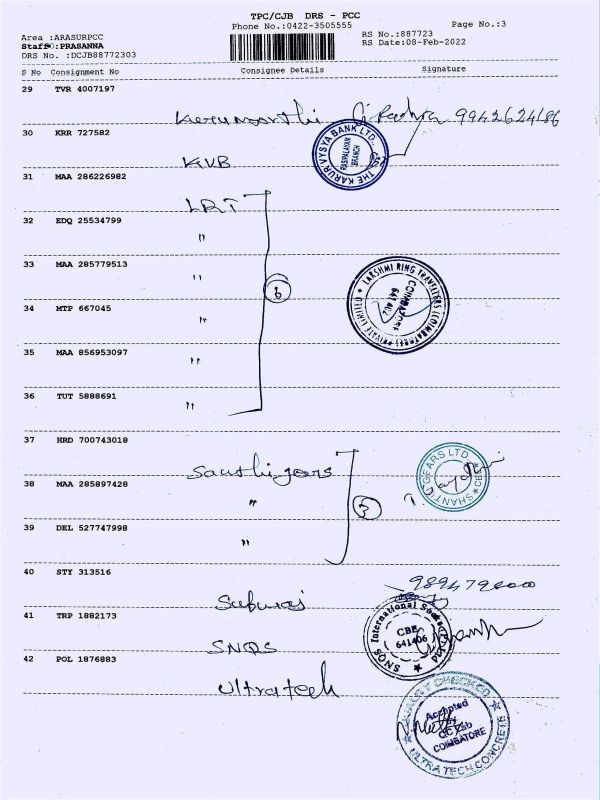 TPC/CJB DRS - PCC
Phone No.:0422-3505555
Page No.:3
Area :ARASURPCC
RS No.:887723
Staff :PRASANNA
RS Date:08-Feb-2022
DRS No. :DCJB88772303
S No Consignment No Consignee Details Signature
29 TVR 4007197
9942624186
30 KRR 727582
KVB
THE KARUR VYSYA BANK LTD.,
BRANCH
31 MAA 286226982
LRT
32 EDQ 25534799
"
33 MAA 285779513
"
6
LAKSHMI RING TRAVELLERS (COIMBATORE) PRIVATE LIMITED
COIMBATORE
34 MTP 667045
"
35 MAA 856953097
"
36 TUT 5888691
"
37 HRD 700743018
Santhi gears
SHANTI GEARS LTD.
38 MAA 285897428
"
3
39 DEL 527747998
"
40 STY 313516
41 TRP 1882173
SNQS
SNQS International
CBE
641406
42 POL 1876883
Ultratech
Accepted
by
QC Lab
COIMBATORE
ULTRA TECH CONCRETE